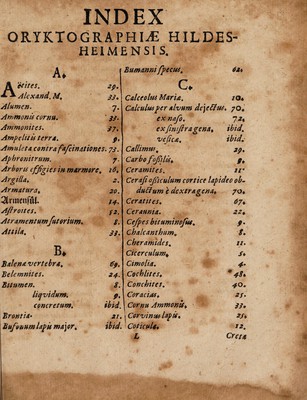 INDEX
ORYKTOGRAPHIÆ HILDES-
HEIMENSIS.
A.
Aëtites. 29.
Alexand. M. 33.
Alumen. 7.
Ammonii cornu. 35.
Ammonites. 37.
Ampelitis terra. 9.
Amuleta contra fascinationes. 73.
Aphronitrum. 7.
Arboris effigies in marmore. 16.
Argilla. 2.
Armatura. 20.
Armensül. 14.
Astroites. 52.
Atramentum sutorium. 8.
Attila. 33.
B.
Balenæ vertebra. 69.
Belemnites. 24.
Bitumen. 8.
liqvidum. 9.
concretum. ibid.
Brontia. 21.
Bufonum lapis major. ibid.
Bumanni specus. 62.
C.
Calceolus Mariæ. 10.
Calculus per alvum dejectus. 70.
ex naso. 72.
ex sinistra gena. ibid.
vesicæ. ibid.
Callimus. 29.
Carbo fossilis. 9.
Ceramites. 11.
Cerasi ossiculum cortice lapideo ob-
ductum è dextra gena. 70.
Ceratites. 67.
Cerannia. 22.
Cespes bituminosus. 9.
Chalcanthum. 8.
Cheramides. 11.
Cicerculum. 5.
Cimolia. 4.
Cochlites. 48.
Conchites. 40.
Coracias. 25.
Cornu Ammonis. 37.
Corvinus lapis. 25.
Coticula. 12.
L Creta